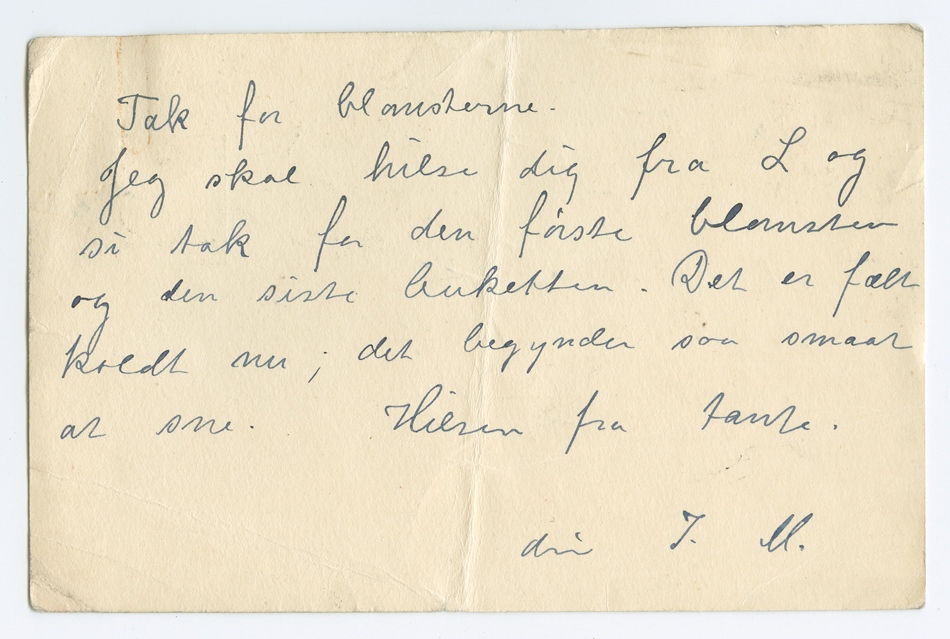 Tak for blomsterne.
Jeg skal hilse dig fra L og
si tak for den første blomsten
og den siste buketten. Det er fælt
koldt nu; det begynder saa smaat
at sne. Hilsen fra tante.
din I. M.